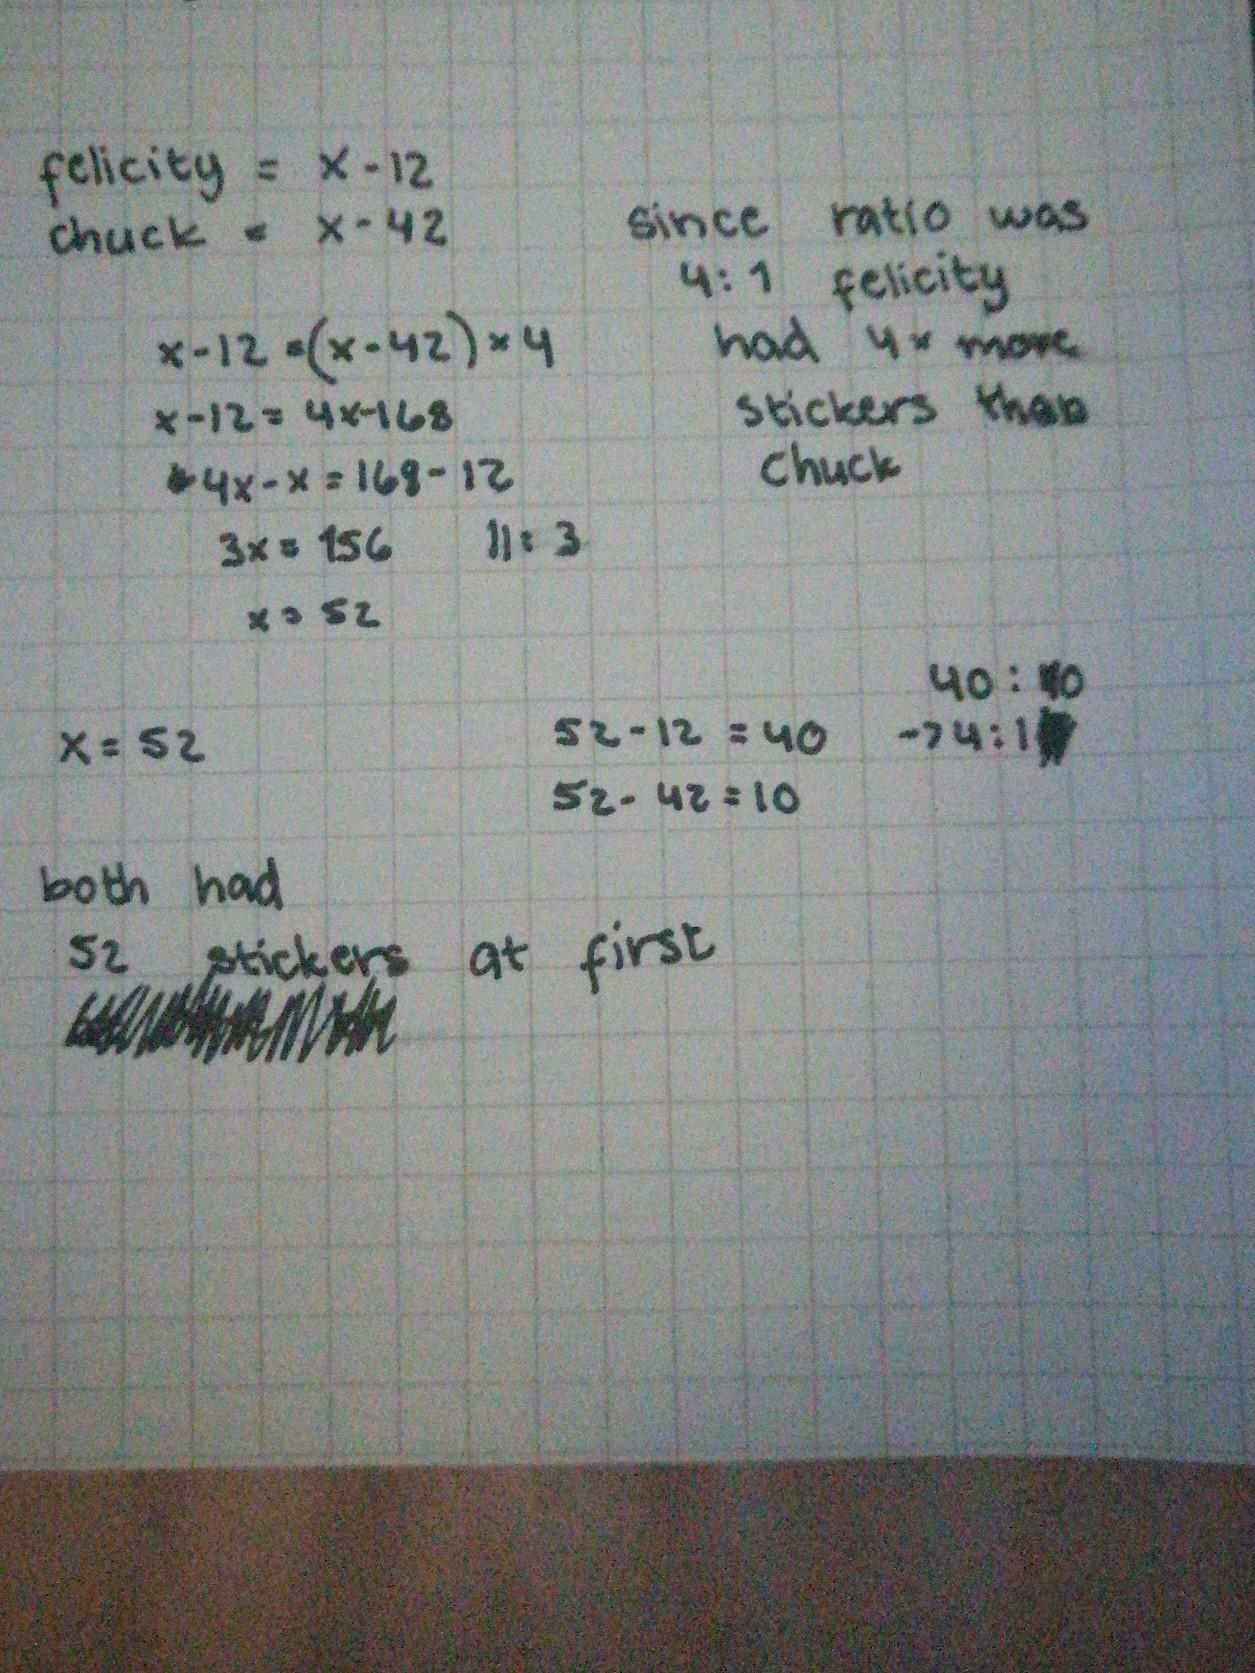 felicity = x - 12
chuck = x - 42
since ratio was
4:1 felicity
had 4x more
stickers than
chuck
x - 12 = (x - 42) × 4
x - 12 = 4x - 168
4x - x = 168 - 12
3x = 156 ||: 3
x = 52
x = 52
52 - 12 = 40
52 - 42 = 10
40 : 10
-> 4 : 1
both had
52 stickers at first